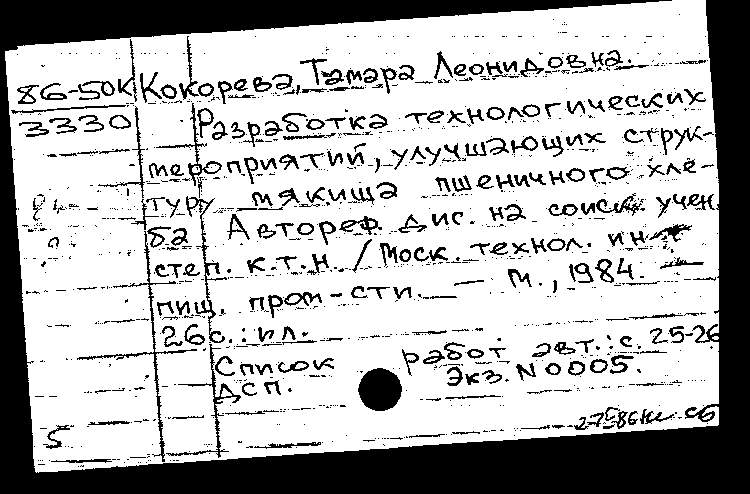 86-50К Кокорева, Тамара Леонидовна.
3330 Разработка технологических
мероприятий, улучшающих струк-
туру мякиша пшеничного хле-
ба. Автореф. дис. на соиск. учен.
степ. к.т.н. / Моск. технол. ин-т
пищ. пром-сти. — М., 1984. —
26с.: ил.
Список работ авт.: с. 25-26
ДСП. Экз. N 0005.
5